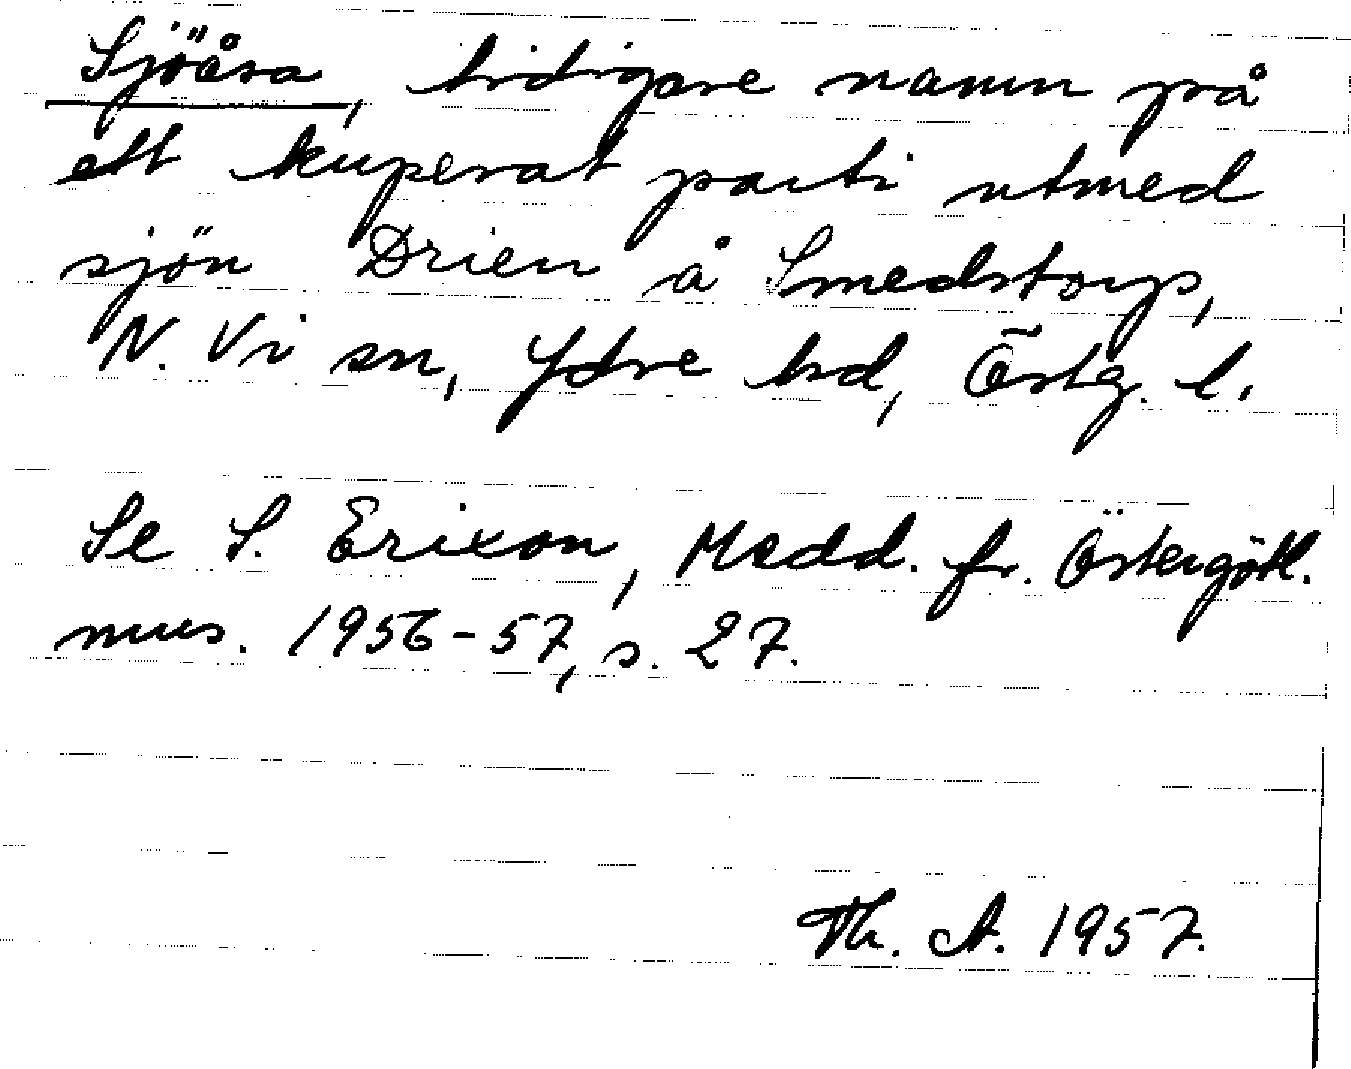 Sjöåsa, tidigare namn på
ett kuperat parti utmed
sjön Drien å Smedstorps,
N. Vi sn, Ydre hd, Östg. l.
Se S. Erixon, Medd. fr. Östergötl.
mus. 1956-57, s. 27.
Th. A. 1957.